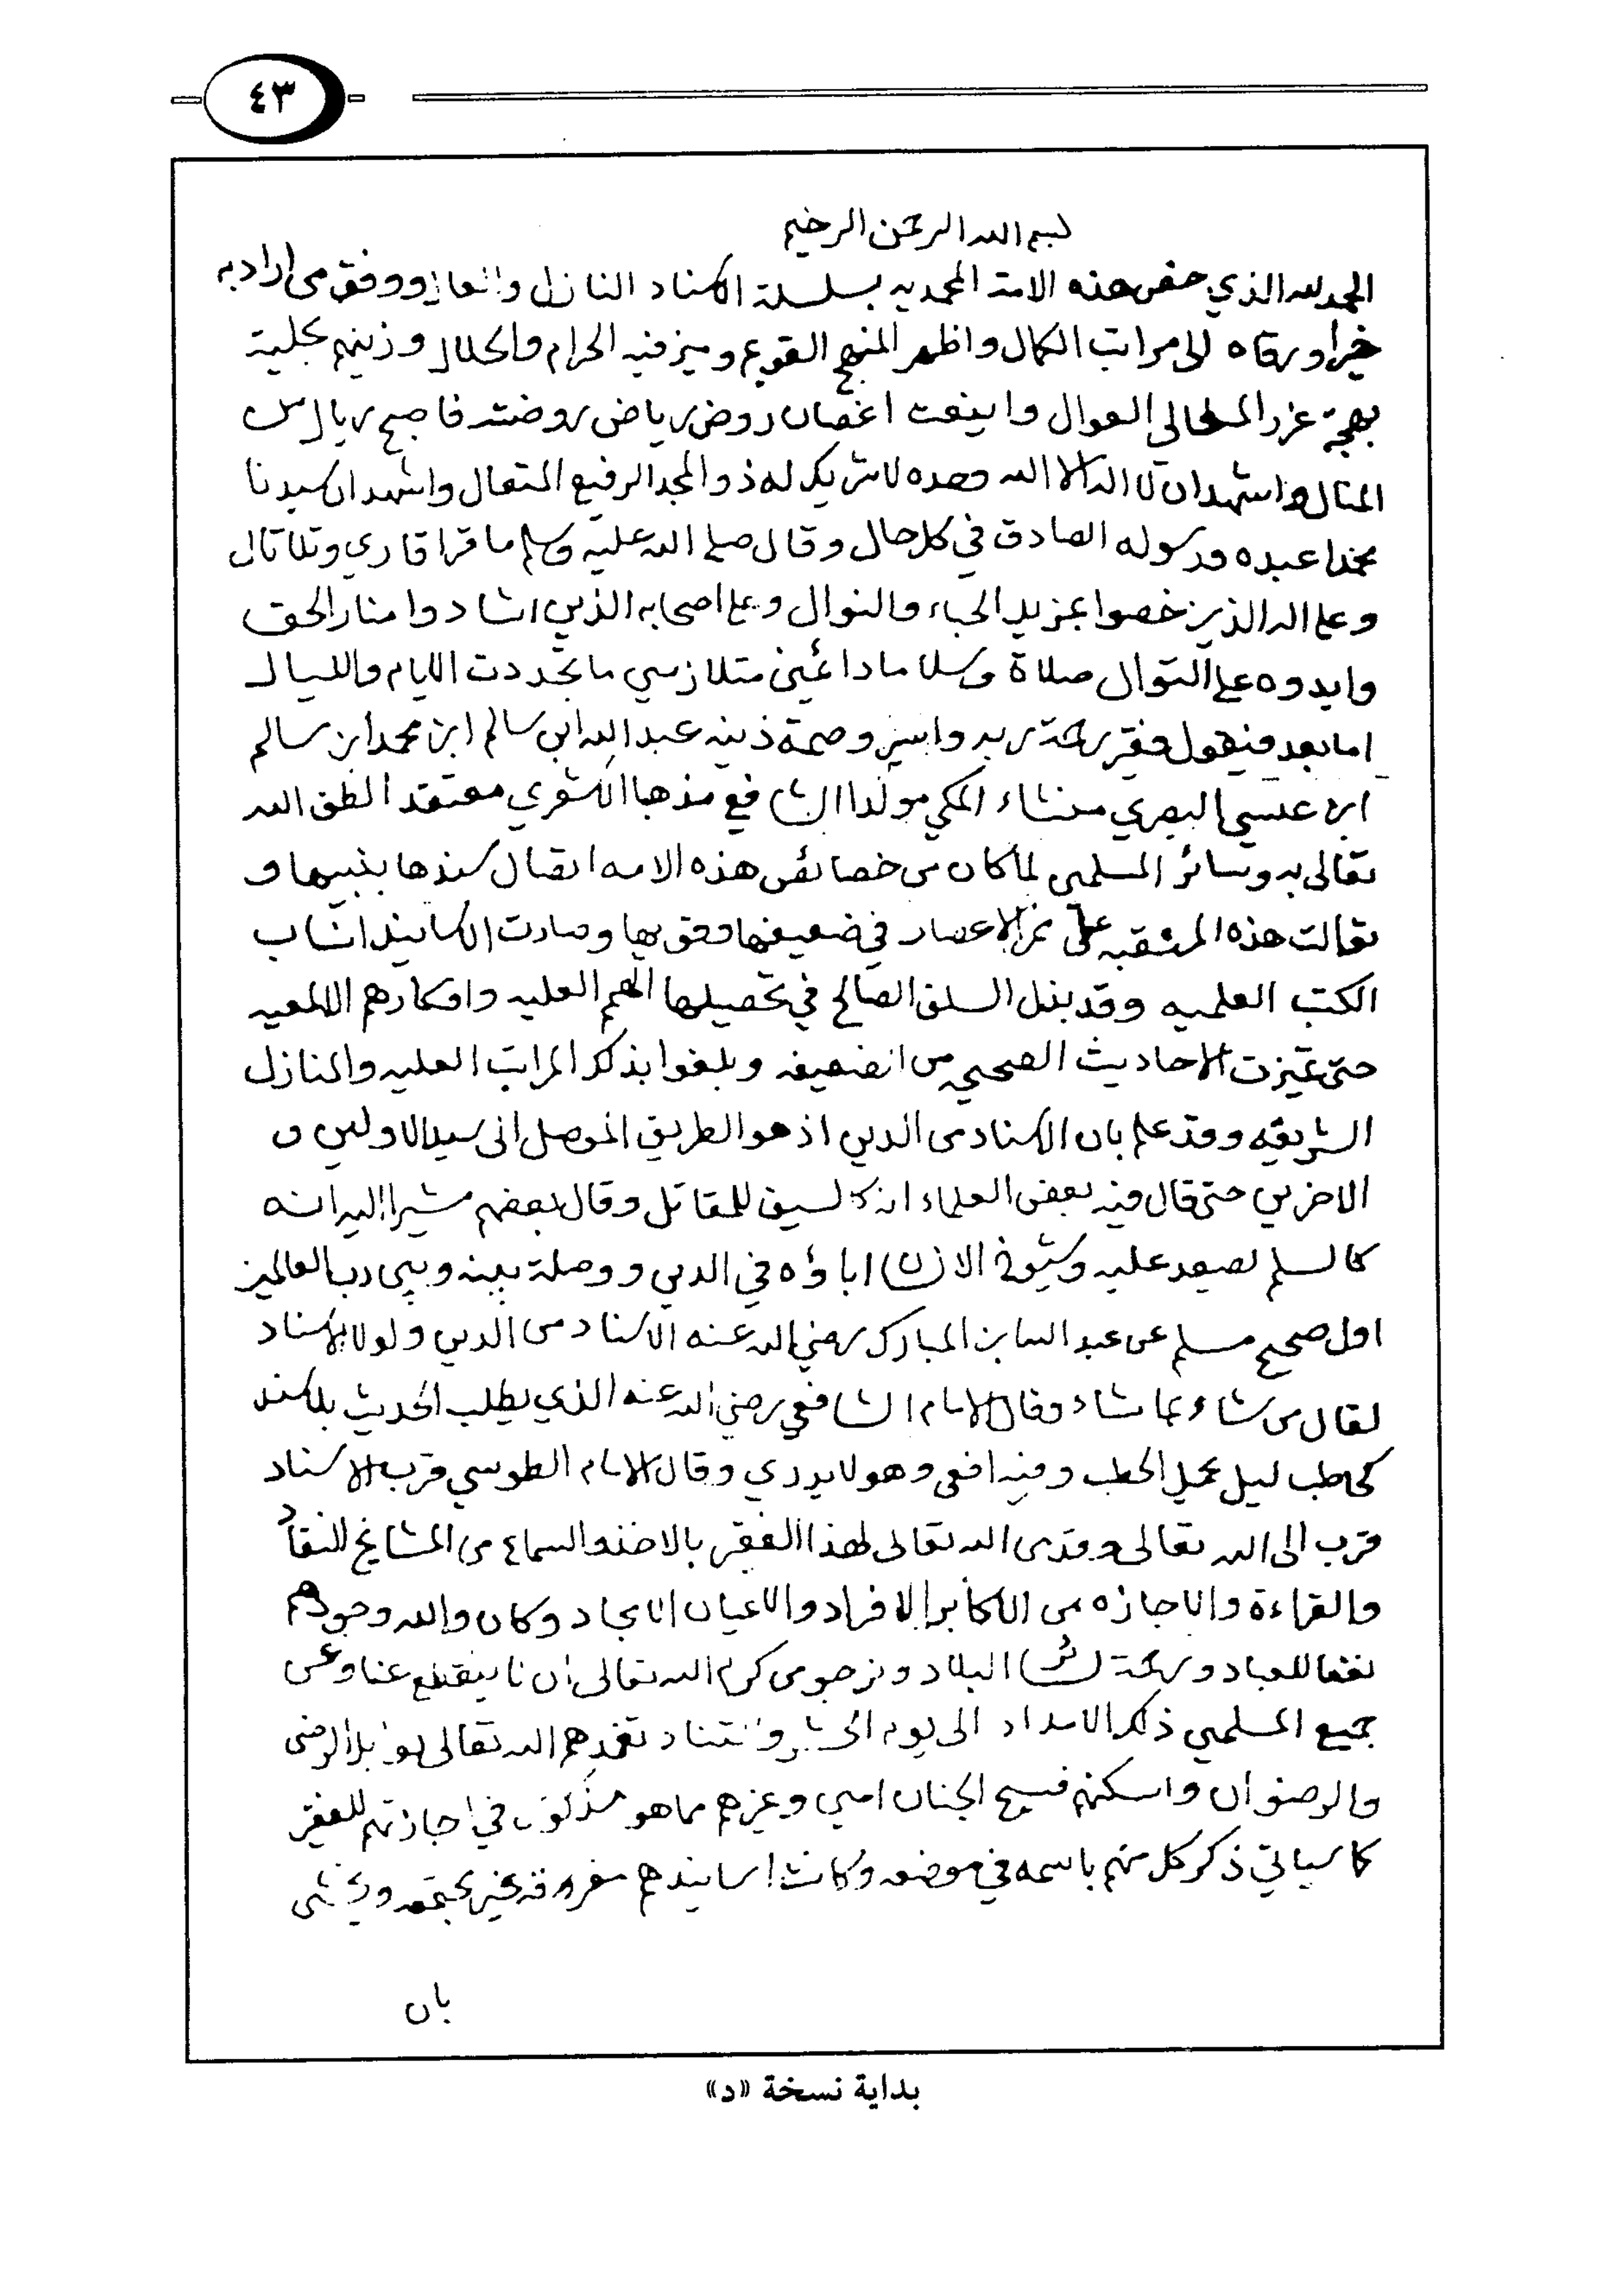 ٤٣
بسم الله الرحمن الرحيم
الحمد لله الذي خص هذه الامة المحمديه بسلسلة الاسناد النازل والعال ووفق من اراد به
خيرا ورقاه الى مراتب الكمال واظهر المنهج القويم وميز فيه الحرام والحلال وزينهم بحلية
بهجة غرر العوال واينعت اغصان روض رياض روضته فاصبح
المنال واشهد ان لا اله الا الله وحده لا شريك له ذو المجد الرفيع المتعال واشهد ان سيدنا
محمدا عبده ورسوله الصادق في كل حال وقال صلى الله عليه وسلم ما قرا قاري وتلا تالى
وعلى اله الذين خصوا بمزيد الحباء والنوال وعلى اصحابه الذين اشادوا منار الحق
وايدوه على التوال صلاة وسلاما دائمين متلازمين ما تجددت الايام والليال
اما بعد فيقول فقير رحمة ربه واسير وصمة ذنبه عبد الله ابن سالم ابن محمد ابن سالم
ابن عيسى البصري منشاء المكي مولدا الشافعي مذهبا الاشعري معتقد الطف الله
تعالى به وسائر المسلمين لما كان من خصائص هذه الامه اتصال سندها بنبيها و
تعالت هذه المنقبه على الاعصار في وصارت الاسانيد انساب
الكتب العلميه وقد بذل السلف الصالح في تحصيلها الهمم العليه وافكارهم الالمعيه
حتى تميزت الاحاديث الصحيحه من الضعيفه وبلغوا بذلك المراتب العليه والمنازل
الشريفه وقد علم بان الاسناد من الدين اذ هو الطريق الموصل الى سيد الاولين و
الاخرين حتى قال فيه بعض العلماء انه كالسيف للمقاتل وقال بعضهم مشيرا اليه انه
كالسلم يصعد عليه وشيوخ الانسان اباؤه في الدين ووصلة بينه وبين رب العالمين
اول صحيح مسلم عن عبد الله ابن المبارك رضي الله عنه الاسناد من الدين ولولا الاسناد
لقال من شاء بما شاء وقال الامام الشافعي رضي الله عنه الذي يطلب الحديث بلا سند
كحاطب ليل يحمل الحطب وفيه افعى وهو لا يدري وقال الامام الطوسي قرب الاسناد
قرب الى الله تعالى وقد من الله تعالى لهذا الفقير بالاخذ والسماع من المشايخ النقاد
والقراءة والاجازه من الاكابر الافراد والاعيان الامجاد وكان والله وجودهم
نفعا للعباد ورحمة البلاد ونرجو من كرم الله تعالى ان لا ينقطع عنا وعن
جميع المسلمين ذلك الامداد الى يوم الحشر والتناد تغمدهم الله تعالى الرضى
والرضوان واسكنهم فسيح الجنان امين وغيرهم مما هو مذكور في اجازتهم للفقير
كما سياتي ذكر كل منهم باسمه في موضعه وكانت اسانيدهم مفروقه غير مجتمعه ويخشى
بان
بداية نسخة «د»